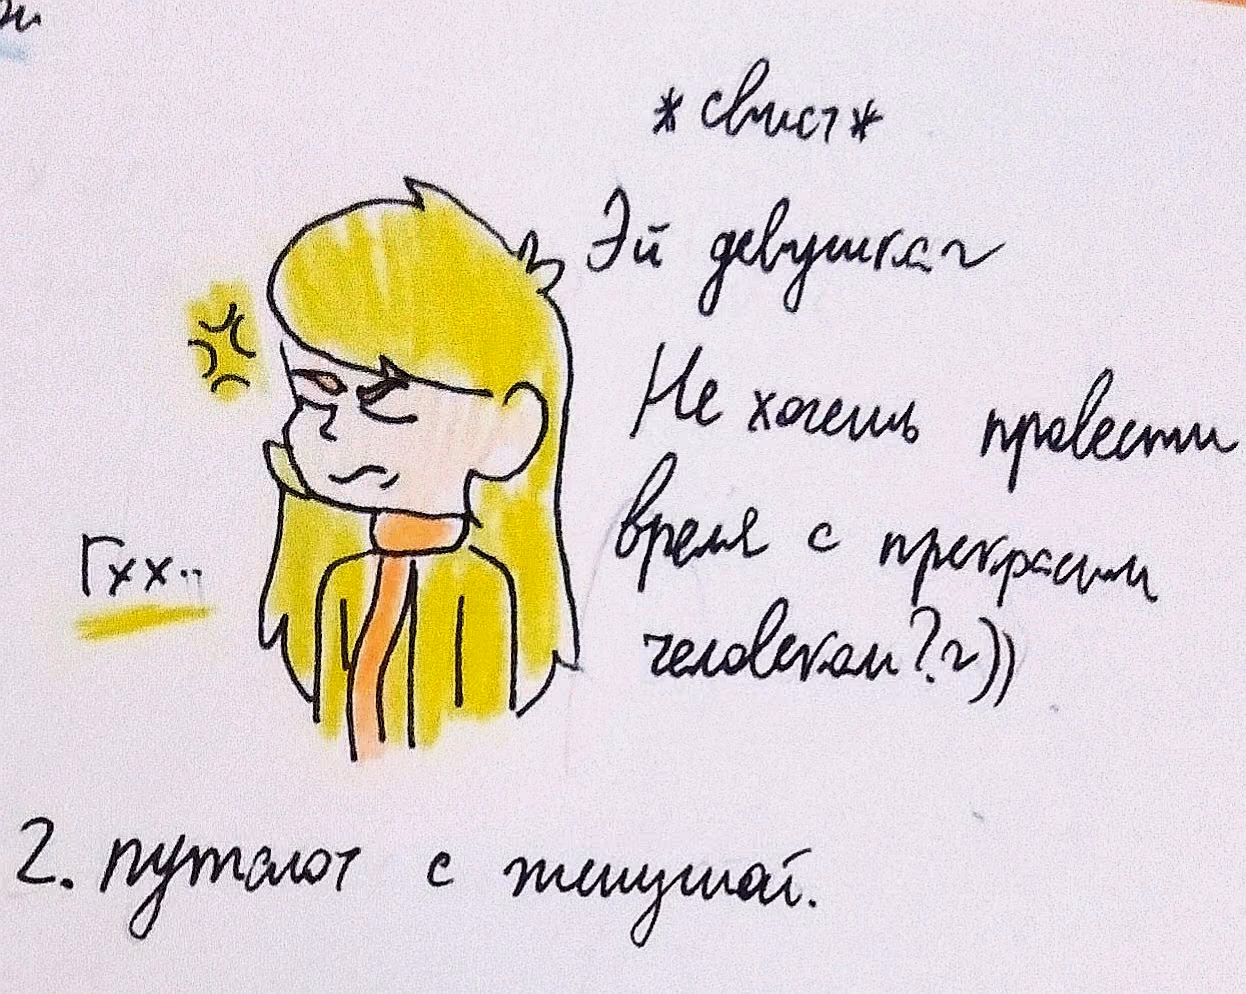 *свист*
Эй девушка~
Не хочешь провести
время с прекрасным
человеком?~))
Гхх..
2. путают с